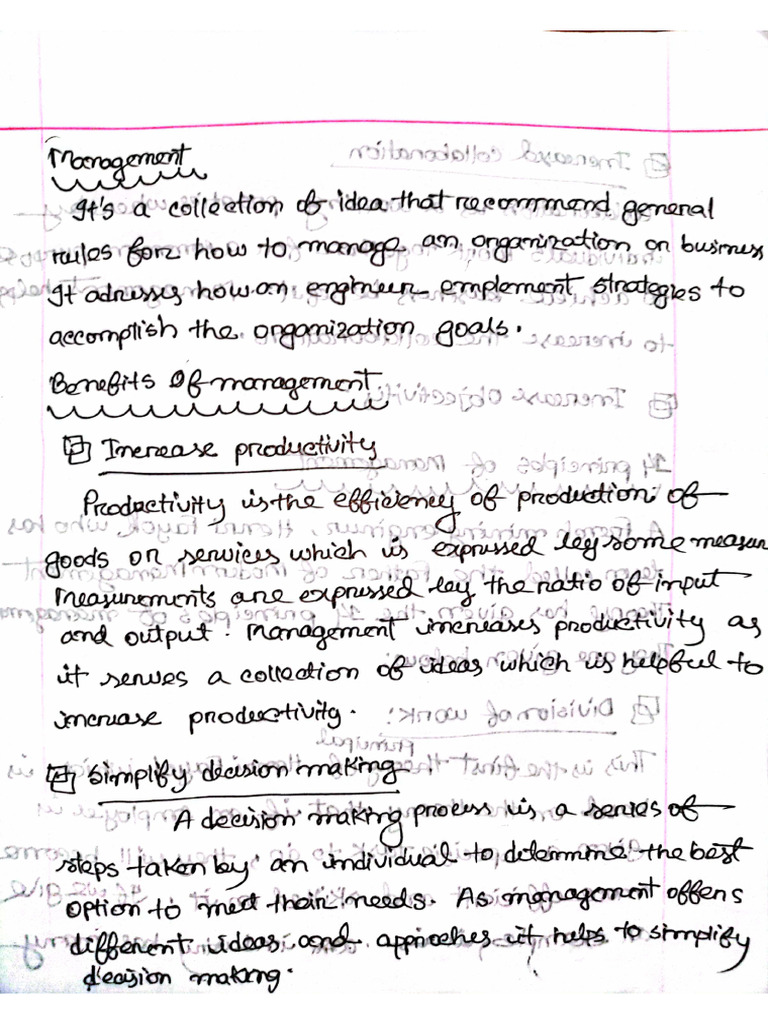 Management
It's a collection of idea that recommend general
rules for how to manage an organization or business
It adresses how an engineer emplement strategies to
accomplish the organization goals.
Benefits Of management
Increase productivity
Productivity is the efficiency of production of
goods or services which is expressed by some measure
measurements are expressed by the ratio of input
and output. Management increases productivity as
it serves a collection of ideas which is helpful to
increase productivity.
Simplify decision making
A decision making process is a series of
steps taken by an individual to determine the best
option to meet their needs. As management offers
different ideas and approches it helps to simplify
decision making.